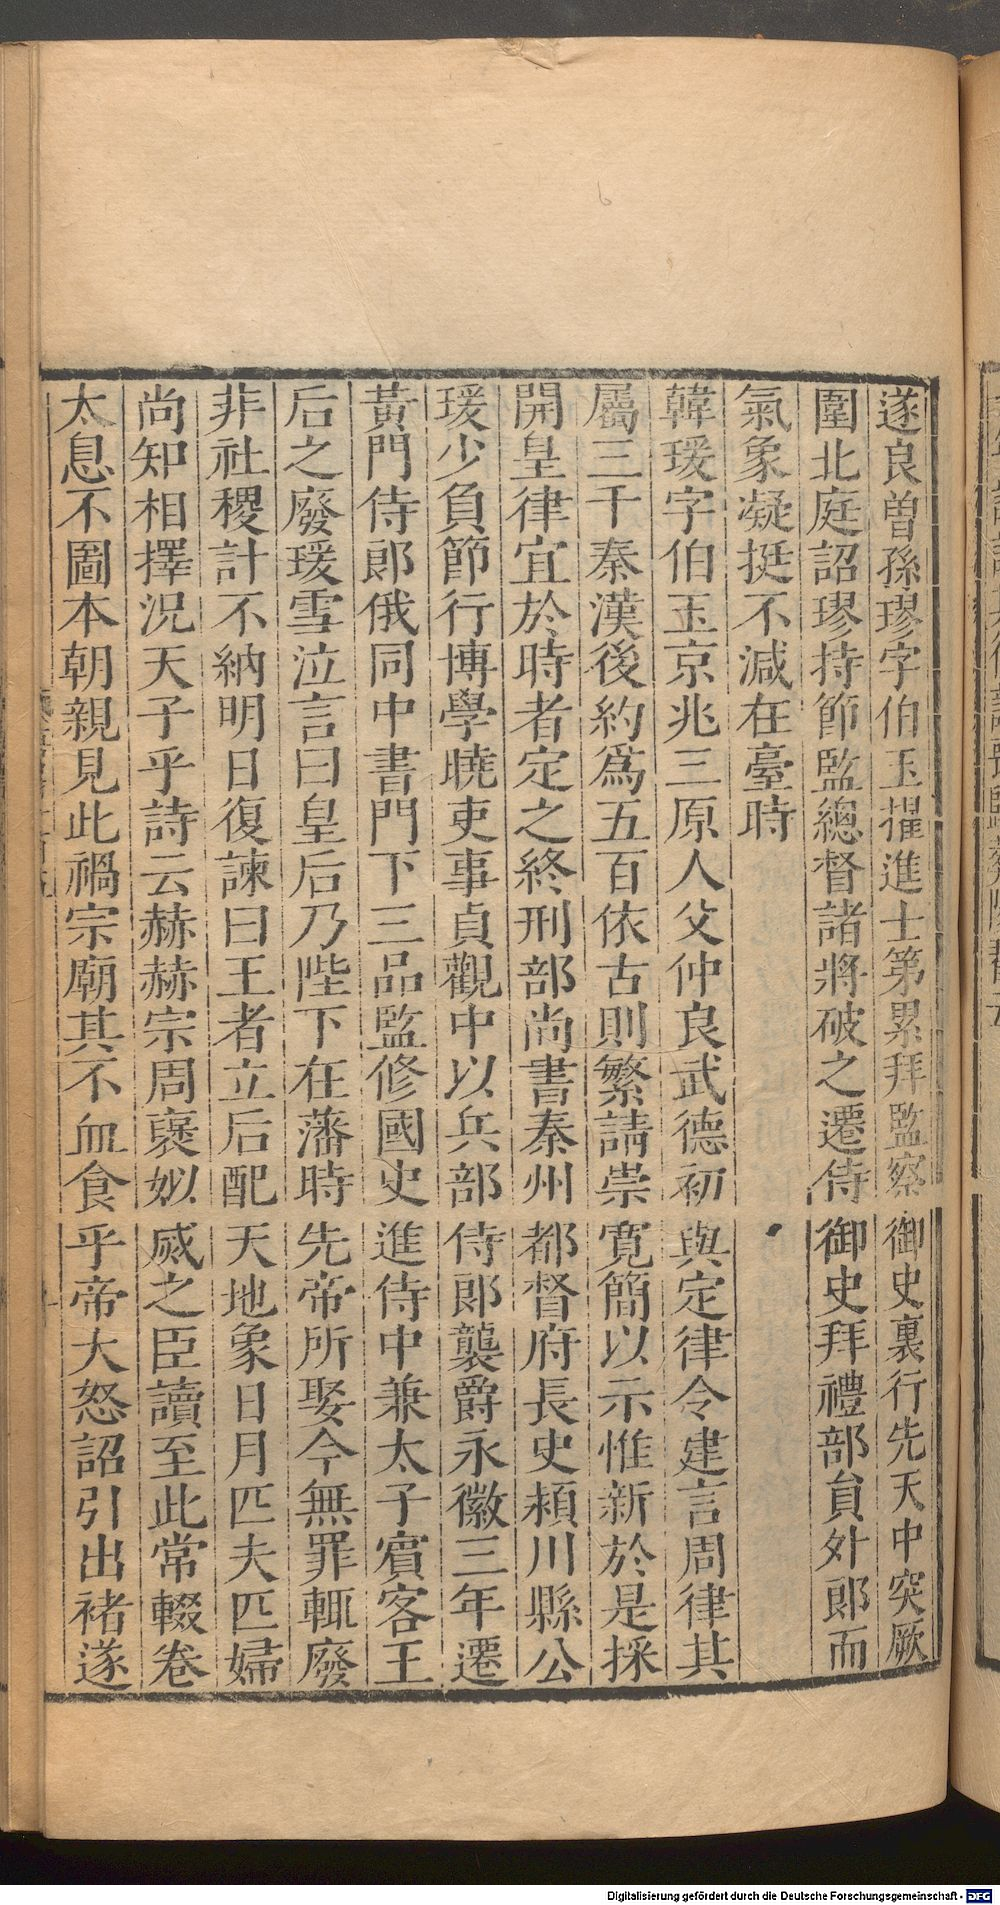 遂良曽孫璆字伯玉擢進士第累拜監察御史裏行先天中突厥
圍北庭詔璆持節監總督諸將破之遷侍御史拜禮部員外郎而
氣象凝挺不減在臺時
韓瑗字伯玉京兆三原人父仲良武德初與定律令建言周律其
屬三千秦漢後約爲五百依古則繁請崇寬簡以示惟新於是採
開皇律宜於時者定之終刑部尚書秦州都督府長史潁川縣公
瑗少負節行博學曉吏事貞觀中以兵部侍郎襲爵永徽三年遷
黃門侍郎俄同中書門下三品監修國史進侍中兼太子賓客王
后之廢瑗雪泣言曰皇后乃陛下在藩時先帝所娶今無罪輒廢
非社稷計不納明日復諫曰王者立后配天地象日月匹夫匹婦
尚知相擇況天子乎詩云赫赫宗周襃姒烕之臣讀至此常輟卷
太息不圖本朝親見此禍宗廟其不血食乎帝大怒詔引出褚遂
Digitalisierung gefördert durch die Deutsche Forschungsgemeinschaft - DFG